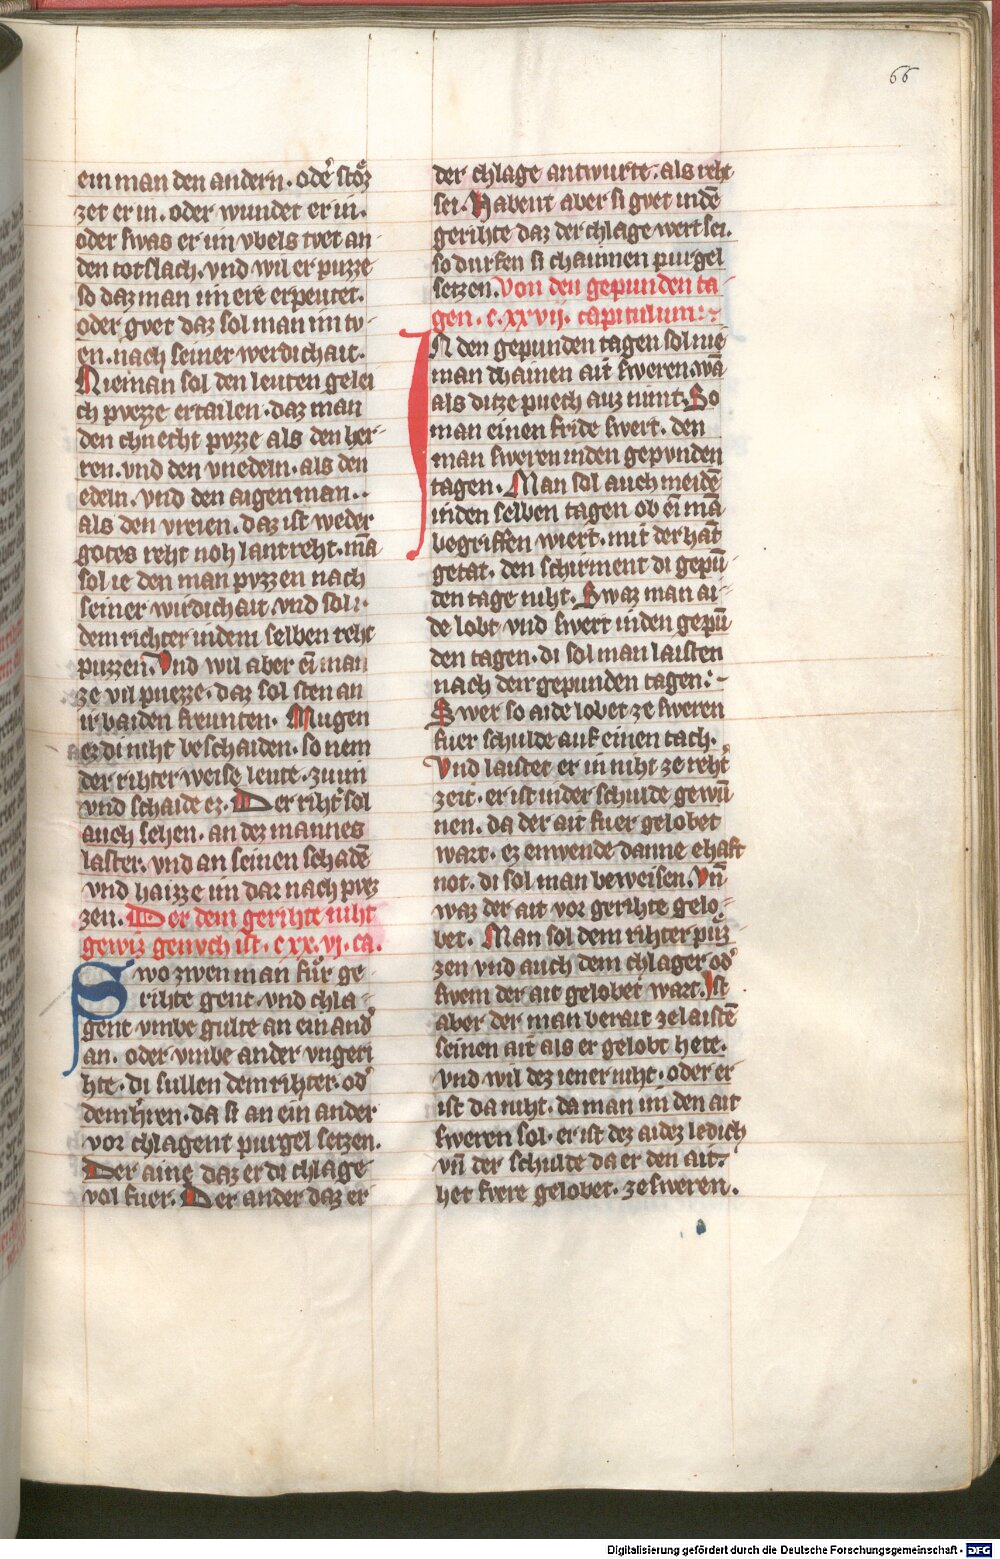 66
ein man den andern. odẻ stoͤz
zet er in. oder wundet er in.
oder swas er im vbels tvet an
den totslach. vnd wil er puzze
so daz man im ere erpeutet.
oder gvet daz sol man im tv
en. nach seiner werdichait.
Nieman sol den leuten gelei
ch pvezze ertailen. daz man
den chnecht pvzze als den her
ren. vnd den vnedeln. als den
edeln. vnd den aigen man.
als den vreien. daz ist weder
gotes reht noh lantreht. mā
sol ie den man pvzzen nach
seiner wirdichait vnd sol
dem richter in dem selben reht
puzzen. Vnd wil aber ein man
ze vil puezze. daz sol sten an
ir baiden freunten. Mugen
ez di niht beschaiden. so nem
der rihter weise leute. zu im
vnd schaide ez. Der riht̉ sol
auch sehen. an dez mannes
laster. vnd an seinen schadē
vnd haizze im dar nach pvez
zen. Der dem gerihte niht
gewiz genvch ist. c xx. vj. ca.
Swo zwen man fuͤr ge
rihte gent. vnd chla
gent vmbe gulte an ein and̉
an. oder vmbe ander vngeri
hte. di sullen dem rihter. od̉
dem h̉ren. da si an ein ander
vor chlagent purgel setzen.
Der aine daz er di chlage
vol fuer. Der ander daz er
der chlage antwurte. als reht
sei. Habent aber si gvet in dē
gerihte daz der chlage wert sei.
so durfen si chainnen purgel
setzen. Von den gepunden ta
gen. c. xxvij. capitulum.
IN den gepunden tagen sol nie
man dhainen ait sweren. wā
als ditze puech auz nimt. So
man einen fride swert. den
man sweren in den gepvnden
tagen. Man sol auch meidē
in den selben tagen ob ein mā
begriffen wiert. mit der hāt
getat. den schirment di gepū
den tage niht. Swaz man ai
de lobt vnd swert in den gepū
den tagen. di sol man laisten
nach den gepunden tagen.
Swer so aide lobet ze sweren
fuer schulde auf einen tach.
Vnd laistet er in niht ze reht̉
zeit. er ist in der schulde gewū
nen. da der ait fuer gelobet
wart. ez enwende danne ehaft
not. di sol man beweisen. Vn̄
waz der ait vor gerihte gelo
bet. Man sol dem rihter puͤz
zen vnd auch dem chlager od̉
swem der ait gelobet wart. Ist
aber der man berait ze laistē
seinen ait als er gelobt hete.
vnd wil dez iener niht. oder er
ist da niht. da man im den ait
sweren sol. er ist dez aidez ledich
vn̄ der schulde da er den ait.
het fvere gelobet. ze sweren.
Digitalisierung gefördert durch die Deutsche Forschungsgemeinschaft - DFG